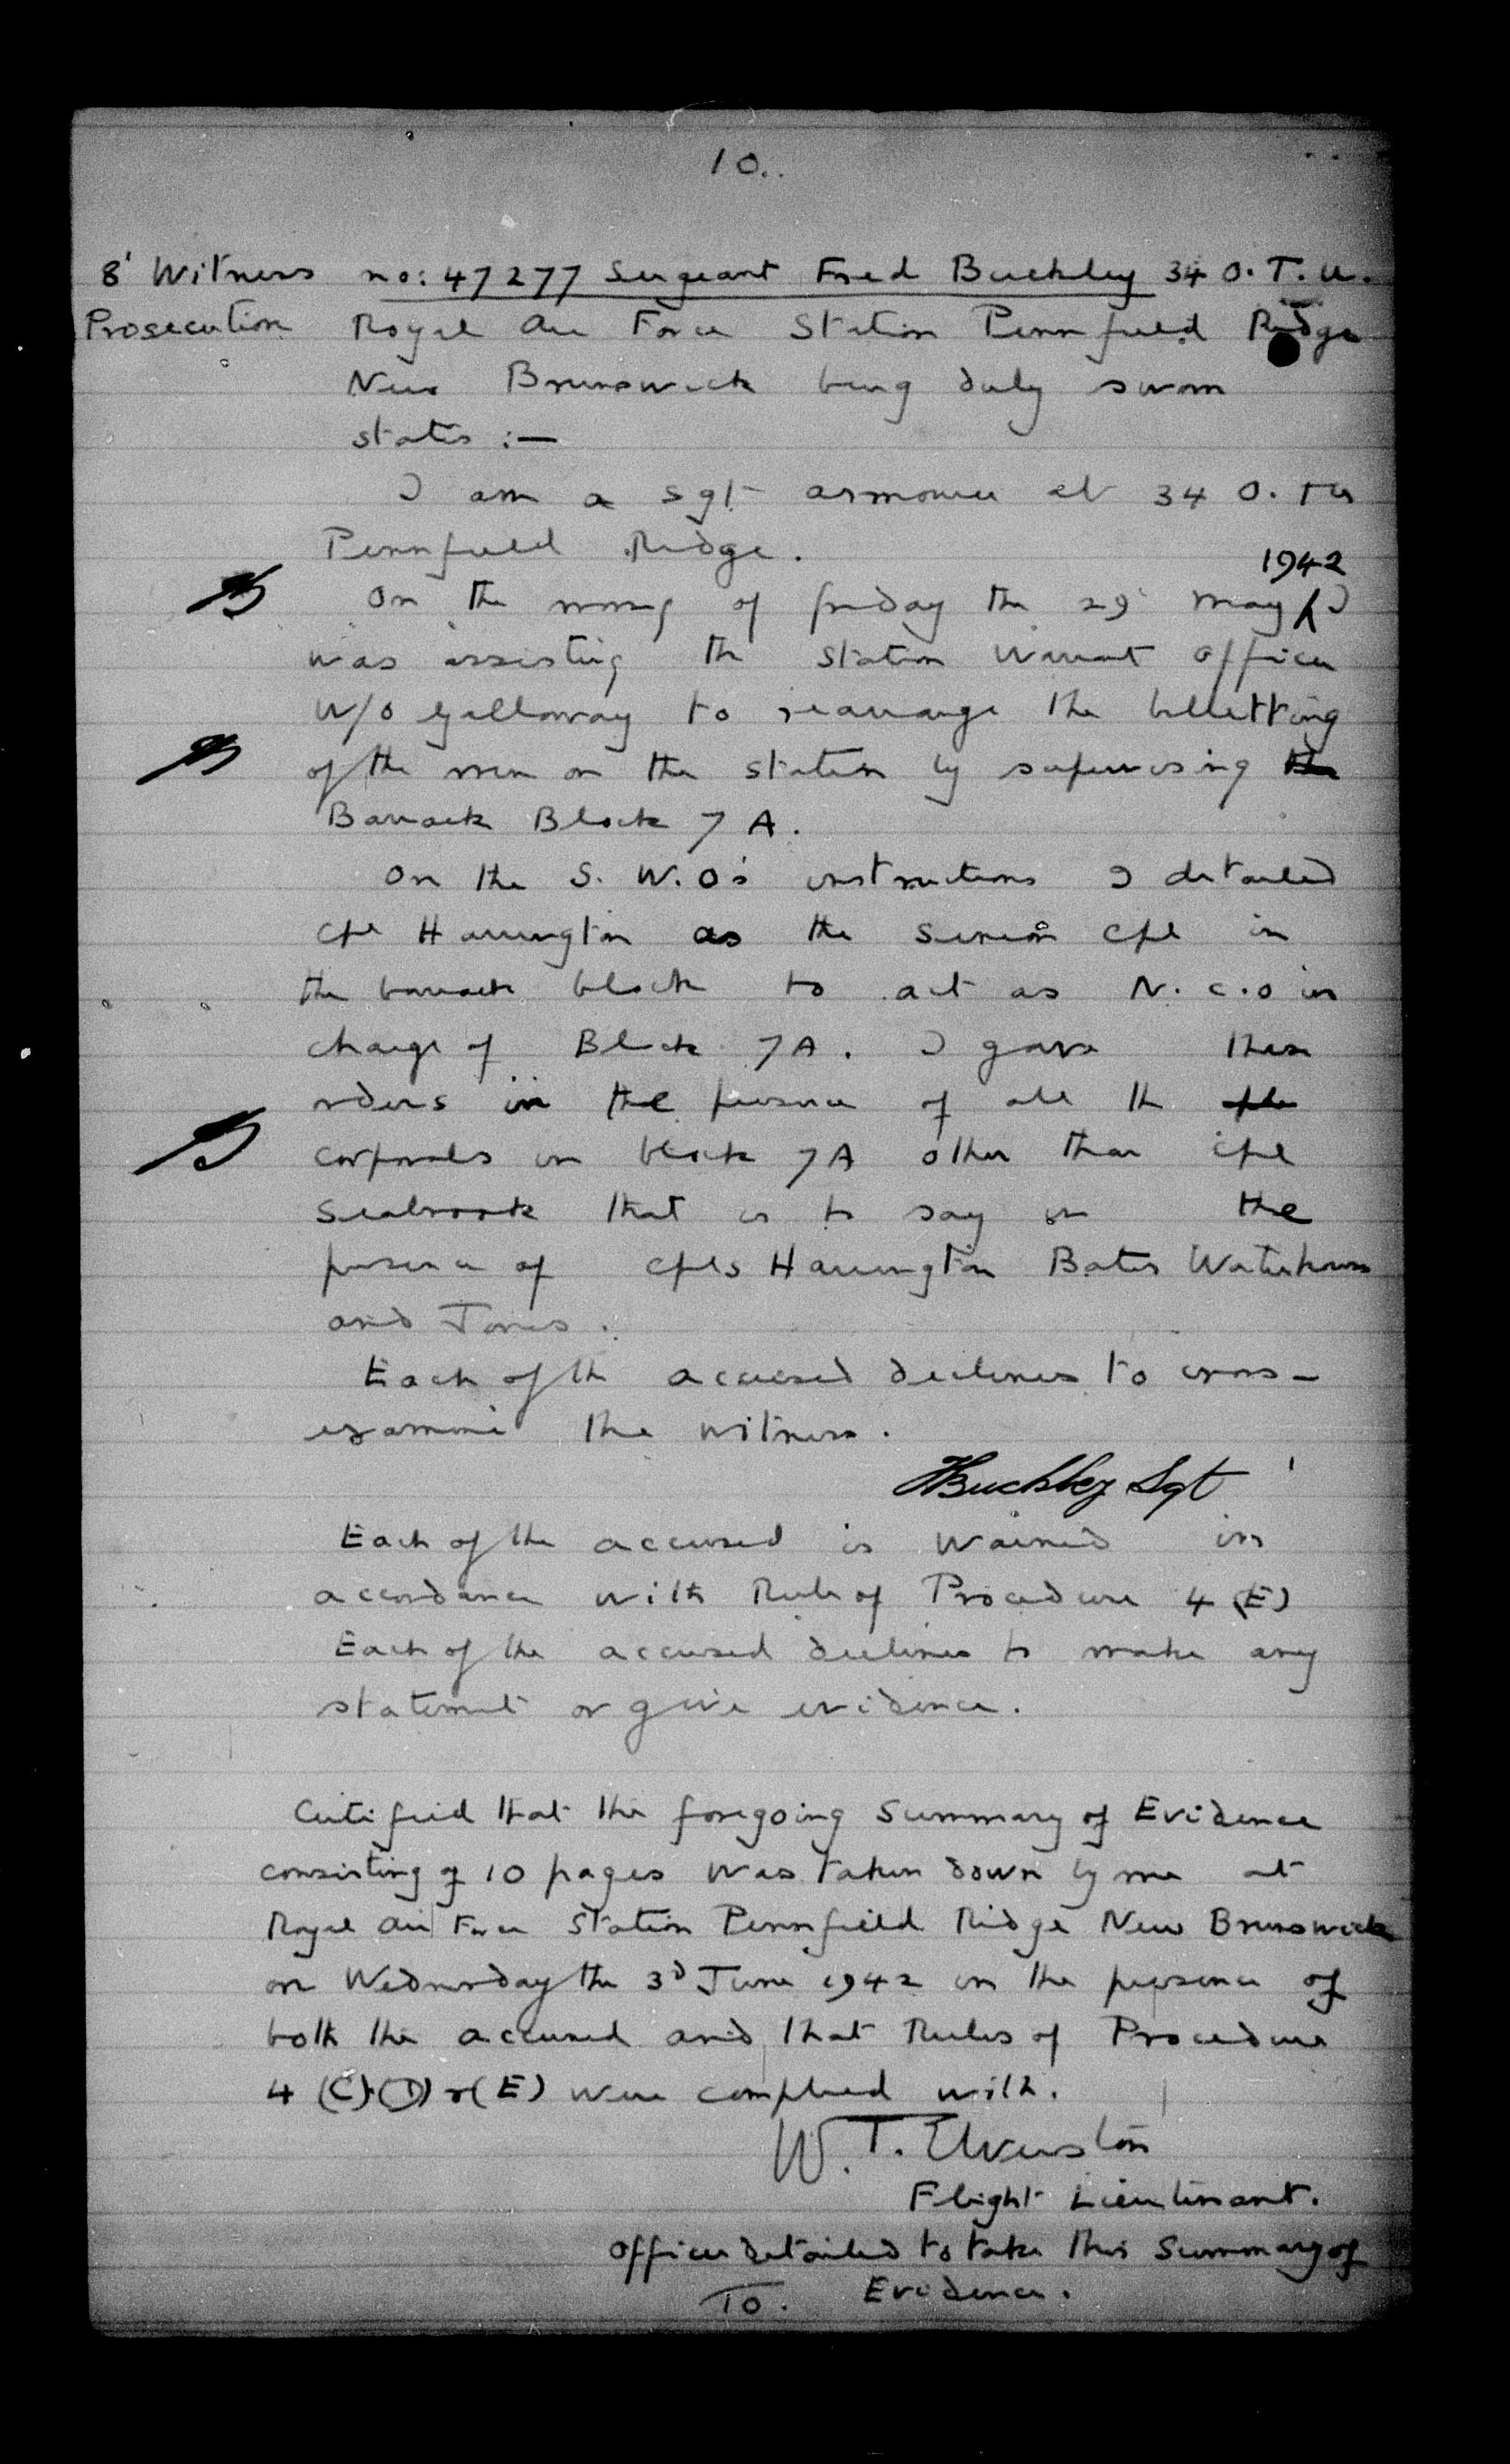 10.
8' Witness no: 47277 Sergeant Fred Buckley 34 O.T.U.
Prosecution Royal Air Force Station Pennfield Ridge
New Brunswick being duly sworn
states :—
I am a Sgt armourer at 34 O.T.U
Pennfield Ridge.
1942
On the morning of friday the 29' May I
was assisting the Station Warrant Officer
W/O Galloway to rearrange the billetting
of the men on the station by supervising the
Barrack Block 7A.
On the S.W.O's instructions I detailed
Cpl Harrington as the senior Cpl in
the barrack block to act as N.C.O in
charge of Block 7A. I gave these
orders in the presence of all the
corporals in block 7A other than Cpl
Seabrook that is to say in the
presence of Cpls Harrington Bates Waterhouse
and Jones.
Each of the accused declines to cross-
examine the witness.
FBuckley Sgt
Each of the accused is warned in
accordance with Rule of Procedure 4 (E)
Each of the accused declines to make any
statement or give evidence.
Certified that the foregoing Summary of Evidence
consisting of 10 pages was taken down by me at
Royal Air Force Station Pennfield Ridge New Brunswick
on Wednesday the 3d June 1942 in the presence of
both the accused and that Rules of Procedure
4 (C) (D) & (E) were complied with.
W.T. Elverston
Flight Lieutenant.
Officer detailed to take this Summary of
Evidence.
10.